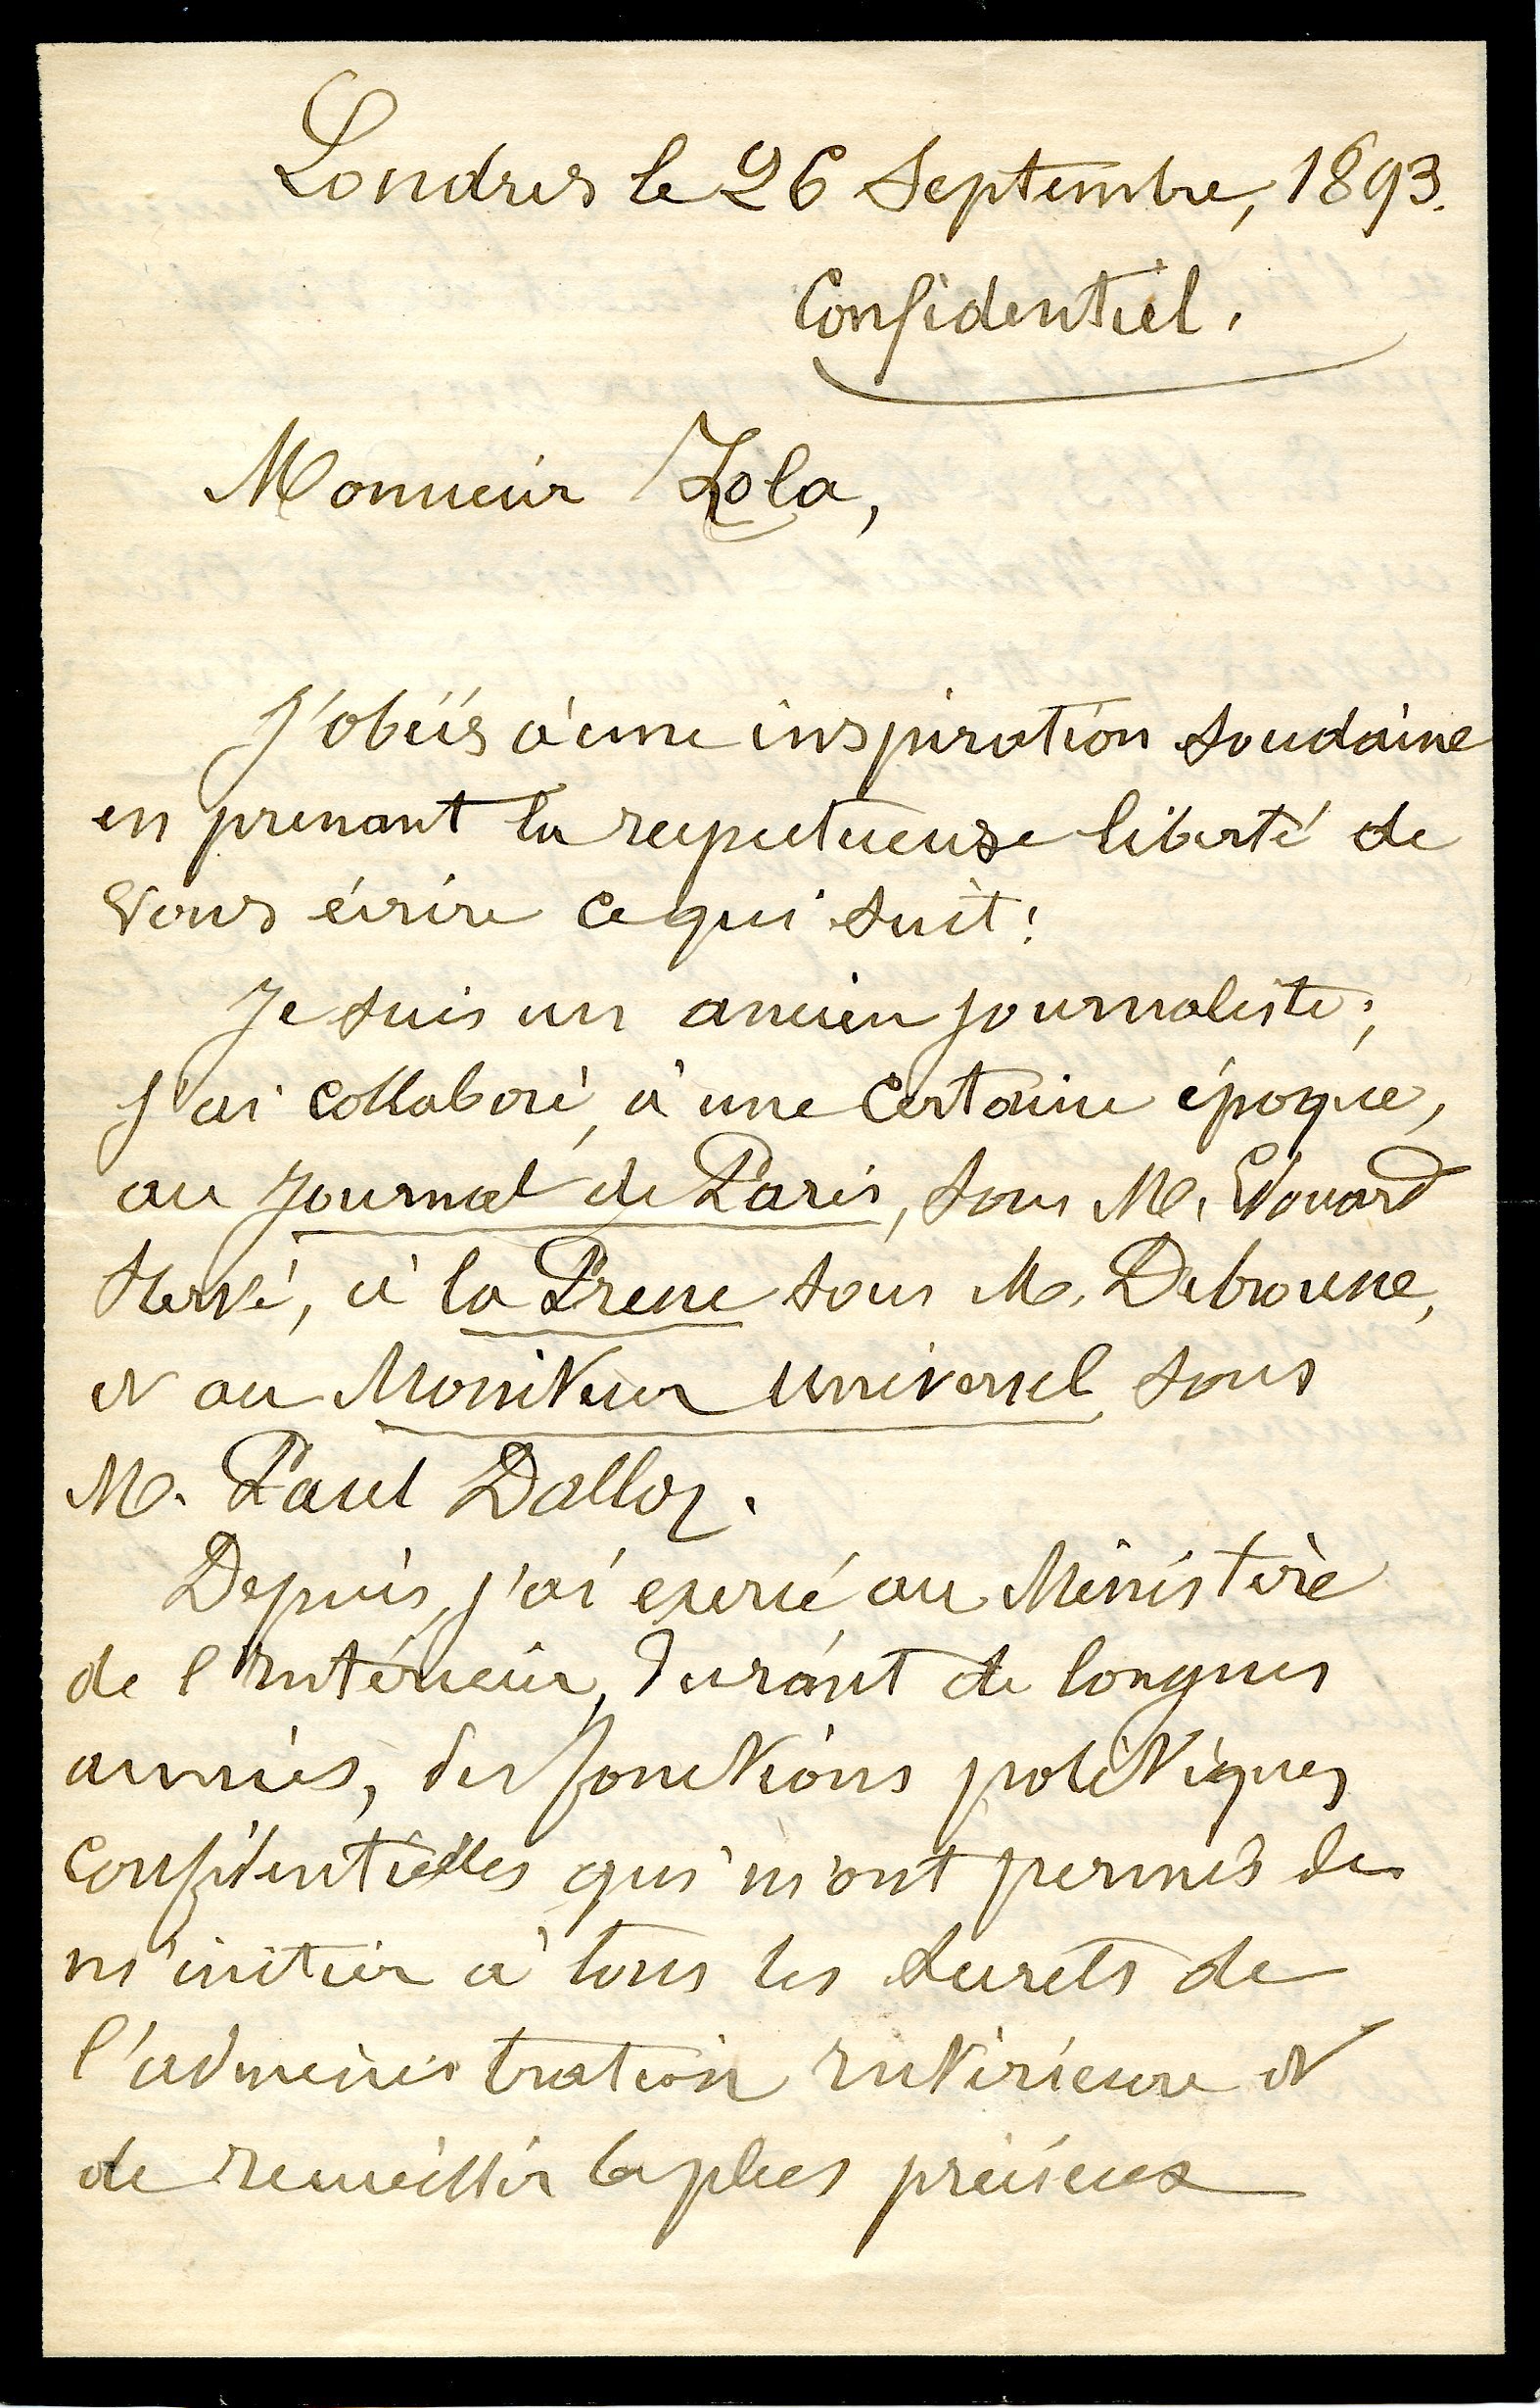 Londres le 26 Septembre, 1893.
Confidentiel.
Monsieur Zola,
J'obéis à une inspiration soudaine
en prenant la respectueuse liberté de
vous écrire ce qui suit :
Je suis un ancien journaliste ;
j'ai collaboré, à une certaine époque,
au Journal de Paris, sous M. Edouard
Hervé, à la Presse sous M. Debrousse,
et au Moniteur Universel sous
M. Paul Dalloz.
Depuis, j'ai exercé au Ministère
de l'Intérieur, durant de longues
années, des fonctions politiques
confidentielles qui m'ont permis de
m'initier à tous les secrets de
l'administration Intérieure et
de recueillir les plus précieux